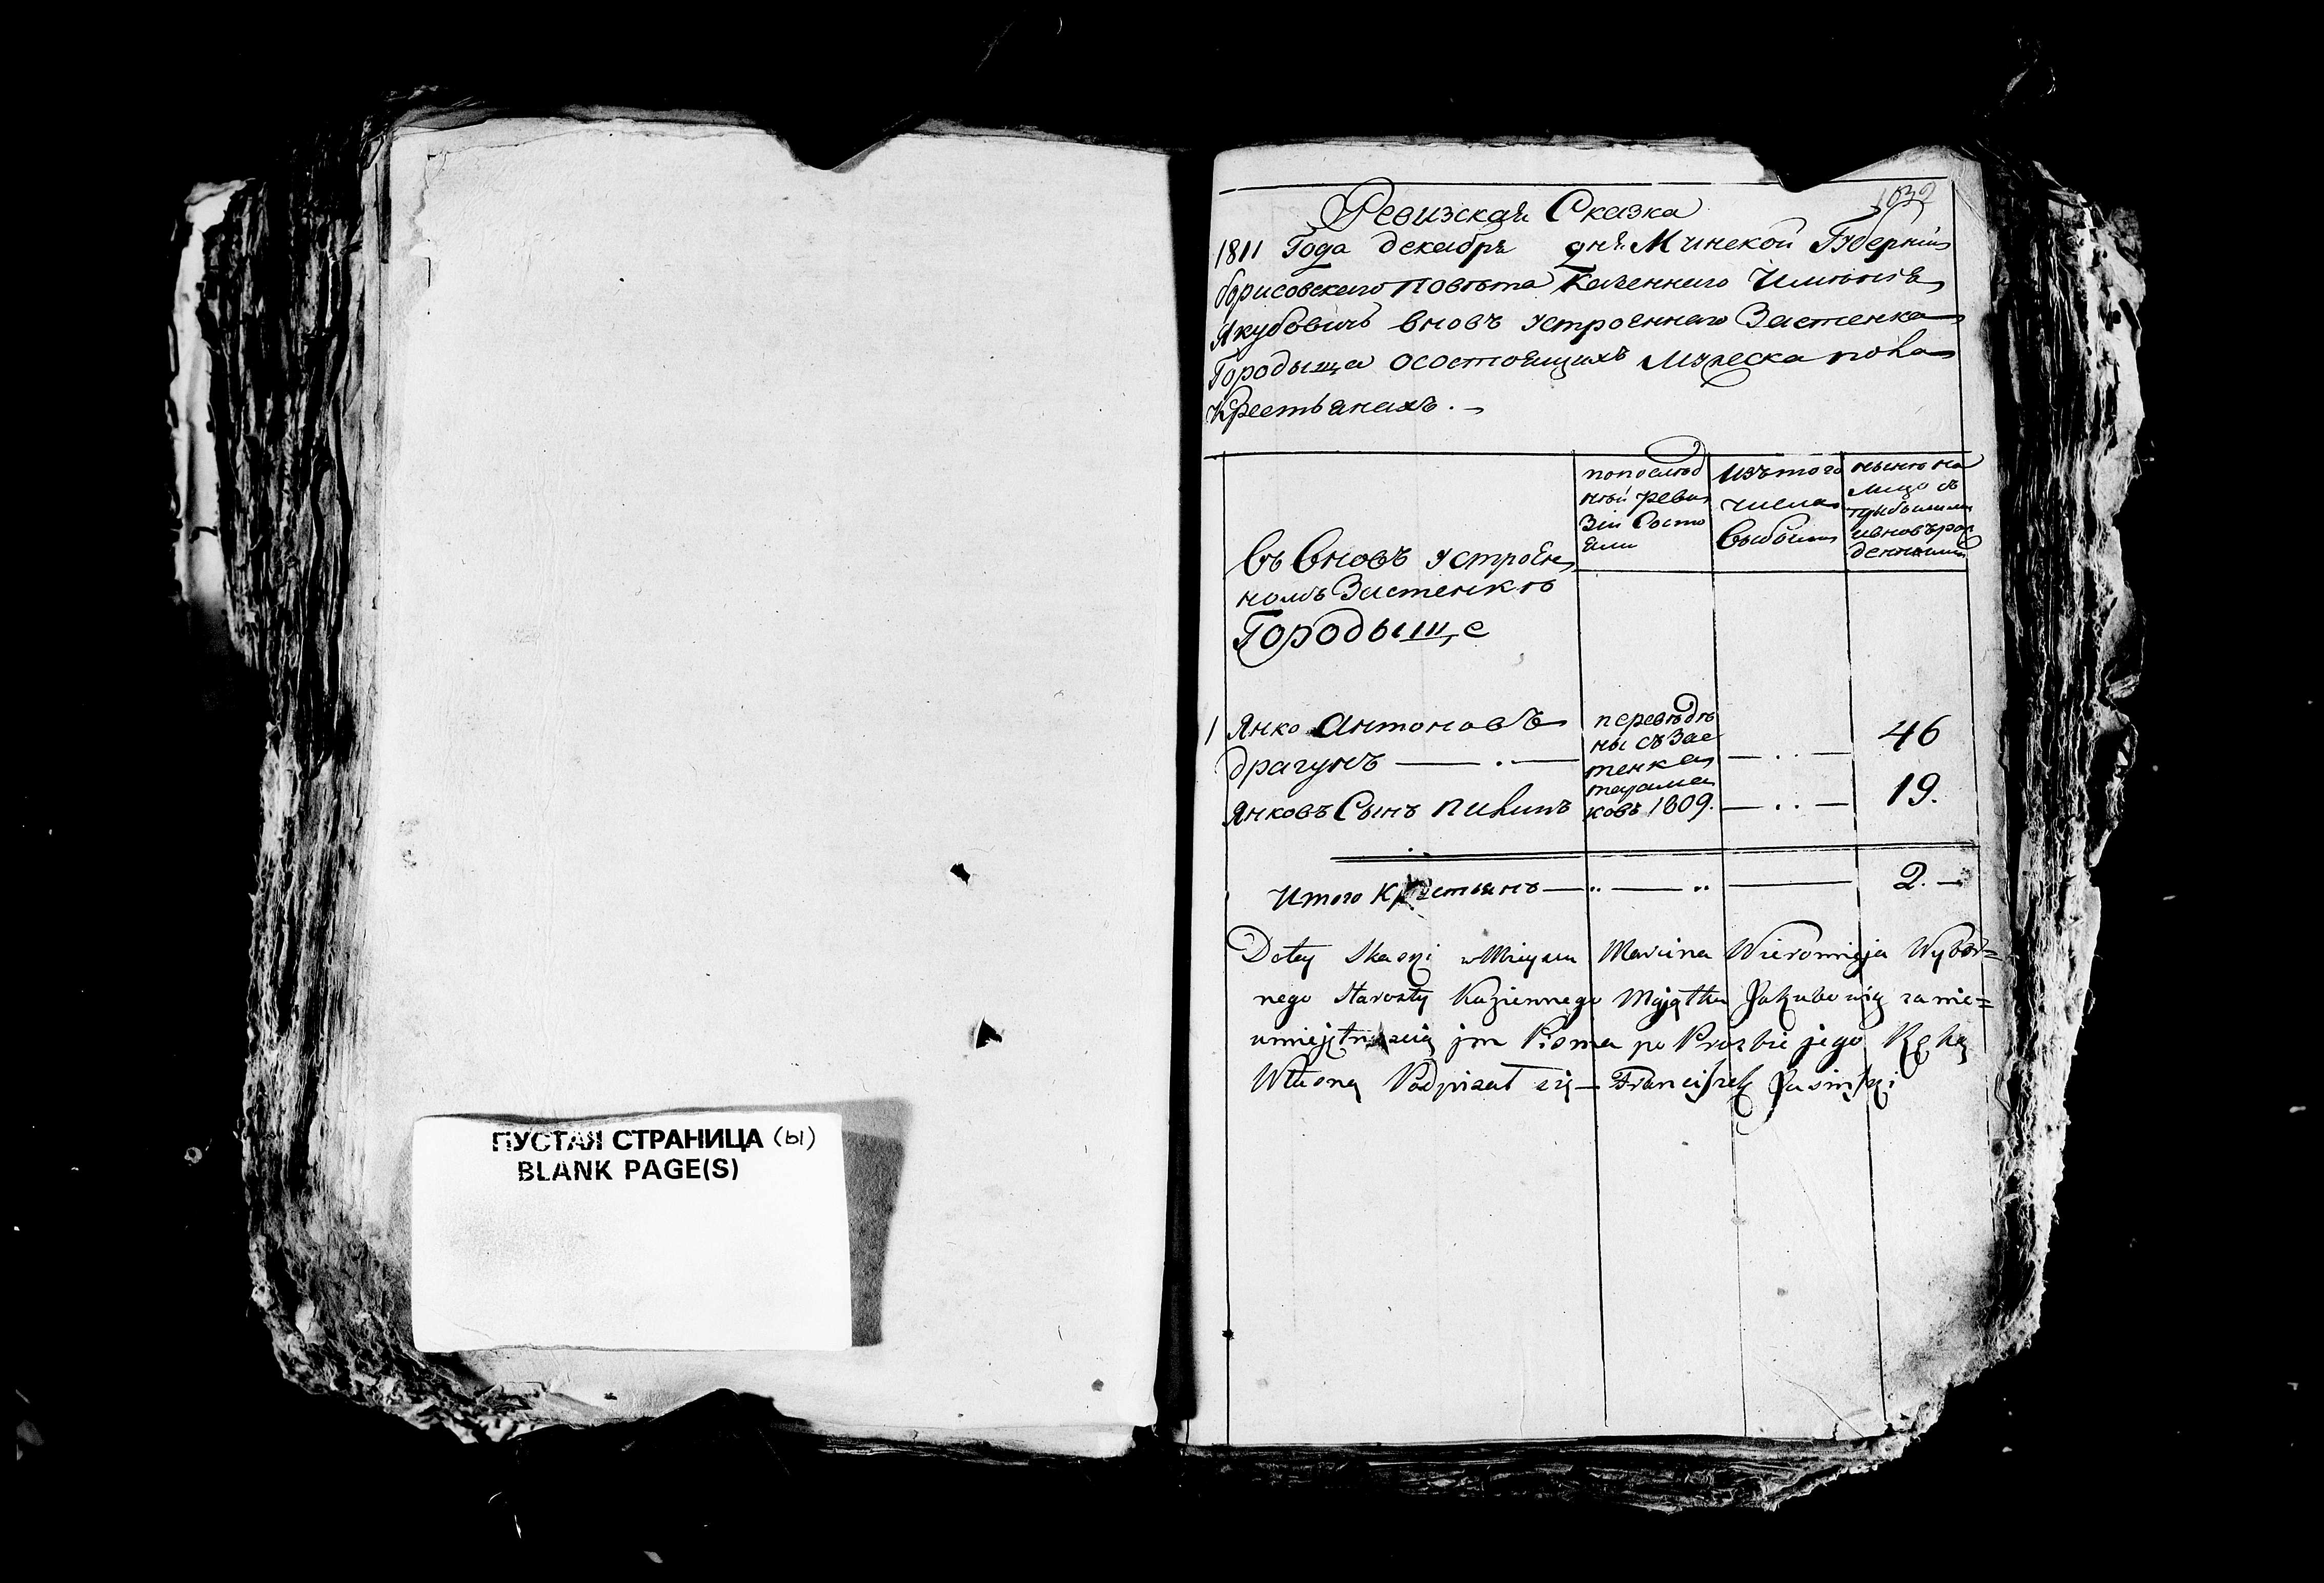 ПУСТАЯ СТРАНИЦА (ы)
BLANK PAGE(S)
1032
Ревизская Сказка
1811 Года декабря дня Минской Губернии
борисовского повѣта Казенного Имѣнія
Якубовичъ вновь устроенного Застенка
Городыща осостоящихъ мужеска пола
Крестьянахъ. —
попослѣд
ней реви
зіи Состо
яли
Изътого
числа
Выбыло
нынѣ на
лицо съ
прибылыми
ивновърож
денными
въ Вновь устроен
номъ Застенкѣ
Городыще
1 Янко Антоновъ
Драгунъ
переведе
ны съ Зас
тенка
ковъ 1809.
46
Янковъ Сынъ Пилипъ
19.
Итого Крестьянъ
2. —
Do tey Skaski w Mieyscu Marcina Wieromieja Wybor=
nego Starosty Kaziennego Majątku Jakubowicz za nie=
umiejętnością jm Pisma po Prozbie jego Ręką
Własną Podpisał się — Franciszek Jasinski